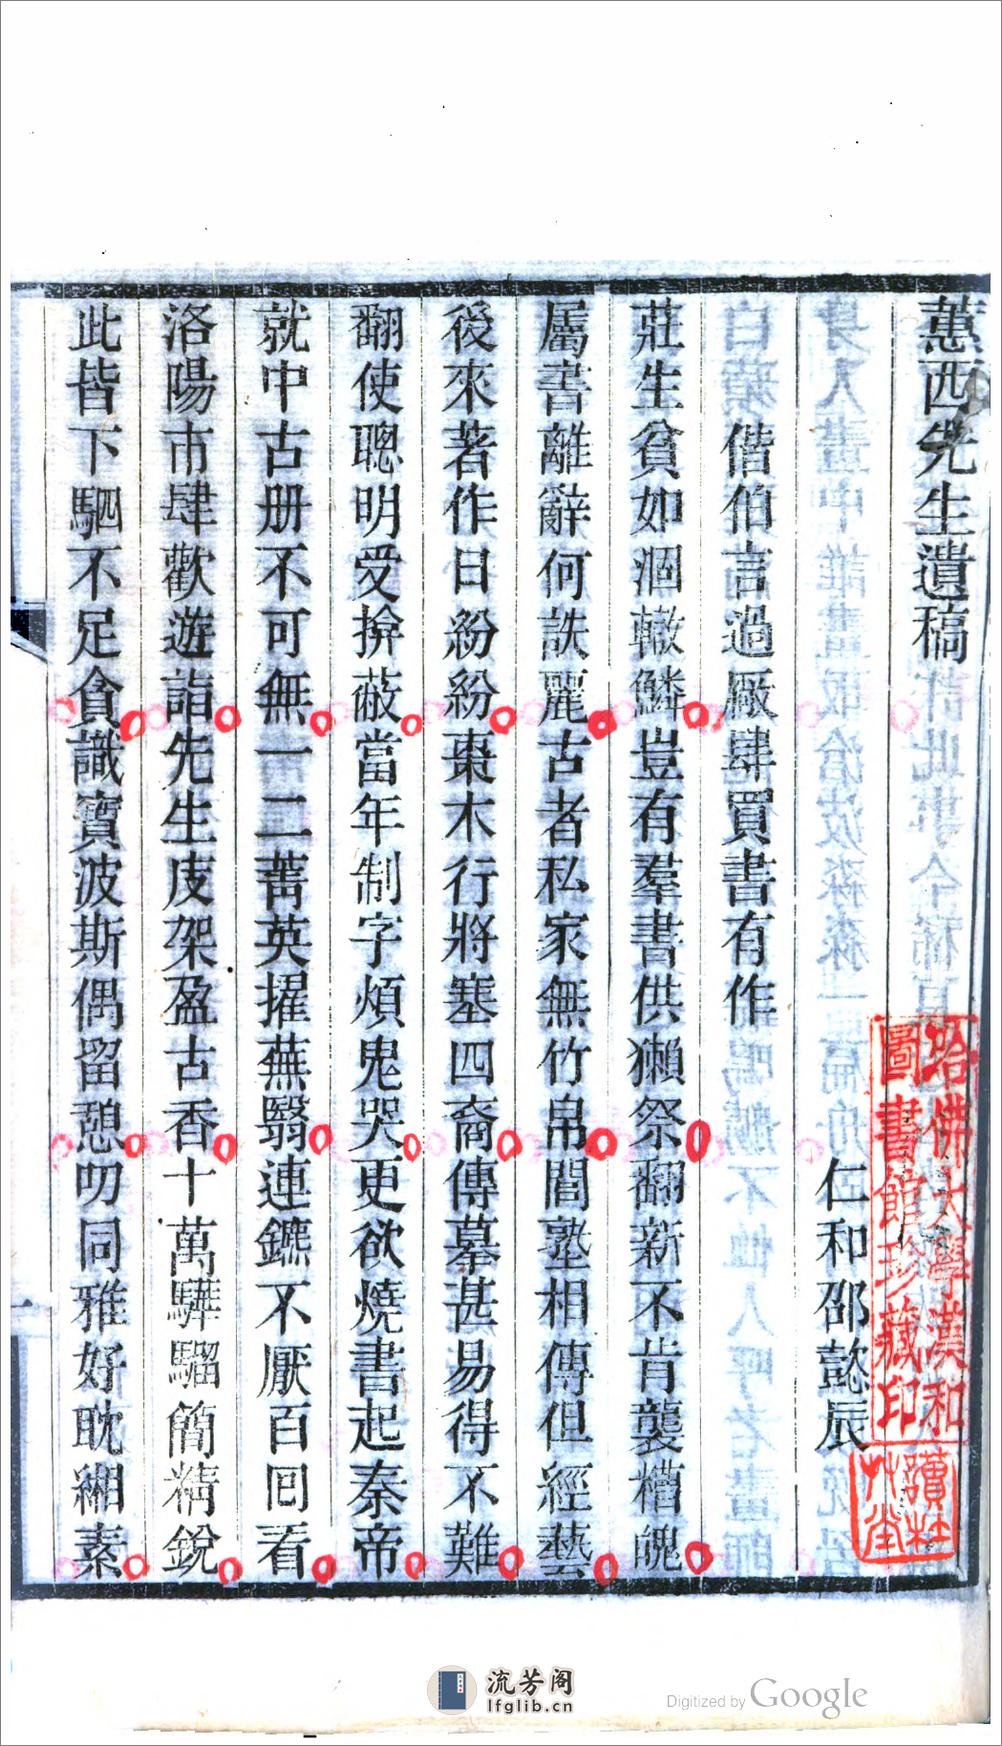 蕙西先生遺稿
仁和邵懿辰
偕伯言過厰肆買書有作
莊生貧如涸轍鱗豈有羣書供獺祭翻新不肯襲糟魄
屬書離辭何詄麗古者私家無竹帛閭塾相傳但經藝
後來著作日紛紛棗木行將塞四裔傳摹甚易得不難
翻使聰明受揜蔽當年制字煩鬼哭更欲燒書起秦帝
就中古册不可無一二菁英擢蕪翳連鑣不厭百回看
洛陽市肆歡遊詣先生庋架盈古香十萬驊騮簡精銳
此皆下駟不足貪識寶波斯偶留憩叨同雅好耽緗素
哈佛大學漢和
圖書館珍藏印
讀杜
艸堂
流芳阁
lfglib.cn
Digitized by Google